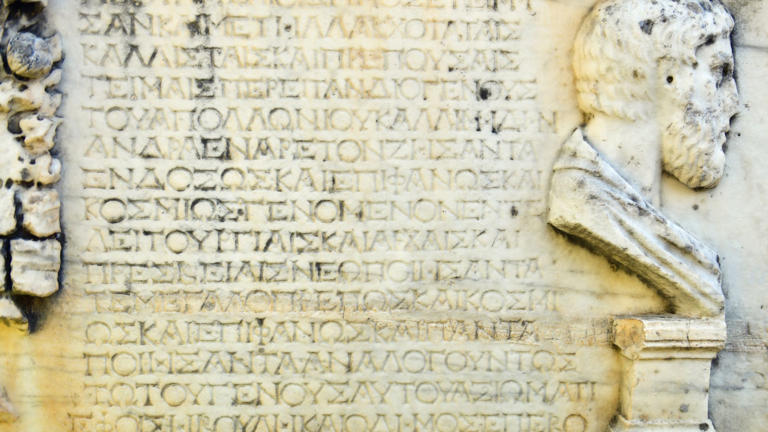 ΣΑΝΚΑΙΜΕΤΗΛΛΑΧΟΤΑΤΑΙΣ
ΚΑΛΛΙΣΤΑΙΣΚΑΙΠΡΕΠΟΥΣΑΙΣ
ΤΕΙΜΑΙΣΠΕΡΕΙΤΑΝΔΙΟΓΕΝΟΥΣ
ΤΟΥΑΠΟΛΛΩΝΙΟΥ
ΑΝΔΡΑΕΝΑΡΕΤΟΝΖΗΣΑΝΤΑ
ΕΝΔΟΞΩΣΚΑΙΕΠΙΦΑΝΩΣΚΑΙ
ΚΟΣΜΙΩΣΓΕΝΟΜΕΝΟΝΕΝ
ΛΕΙΤΟΥΡΓΙΑΙΣΚΑΙΑΡΧΑΙΣΚΑΙ
ΠΡΕΣΒΕΙΑΙΣΝΕΩΠΟΙΗΣΑΝΤΑ
ΤΕΜΕΓΑΛΟΠΡΕΠΩΣΚΑΙΚΟΣΜΙ
ΩΣΚΑΙΕΠΙΦΑΝΩΣΚΑΙΠΑΝΤΑ
ΠΟΙΗΣΑΝΤΑΑΝΑΛΟΓΟΥΝΤΩΣ
ΤΩΤΟΥΓΕΝΟΥΣΑΥΤΟΥΑΞΙΩΜΑΤΙ
ΕΦΟΙΣΗΒΟΥΛΗΚΑΙΟΔΗΜΟΣ